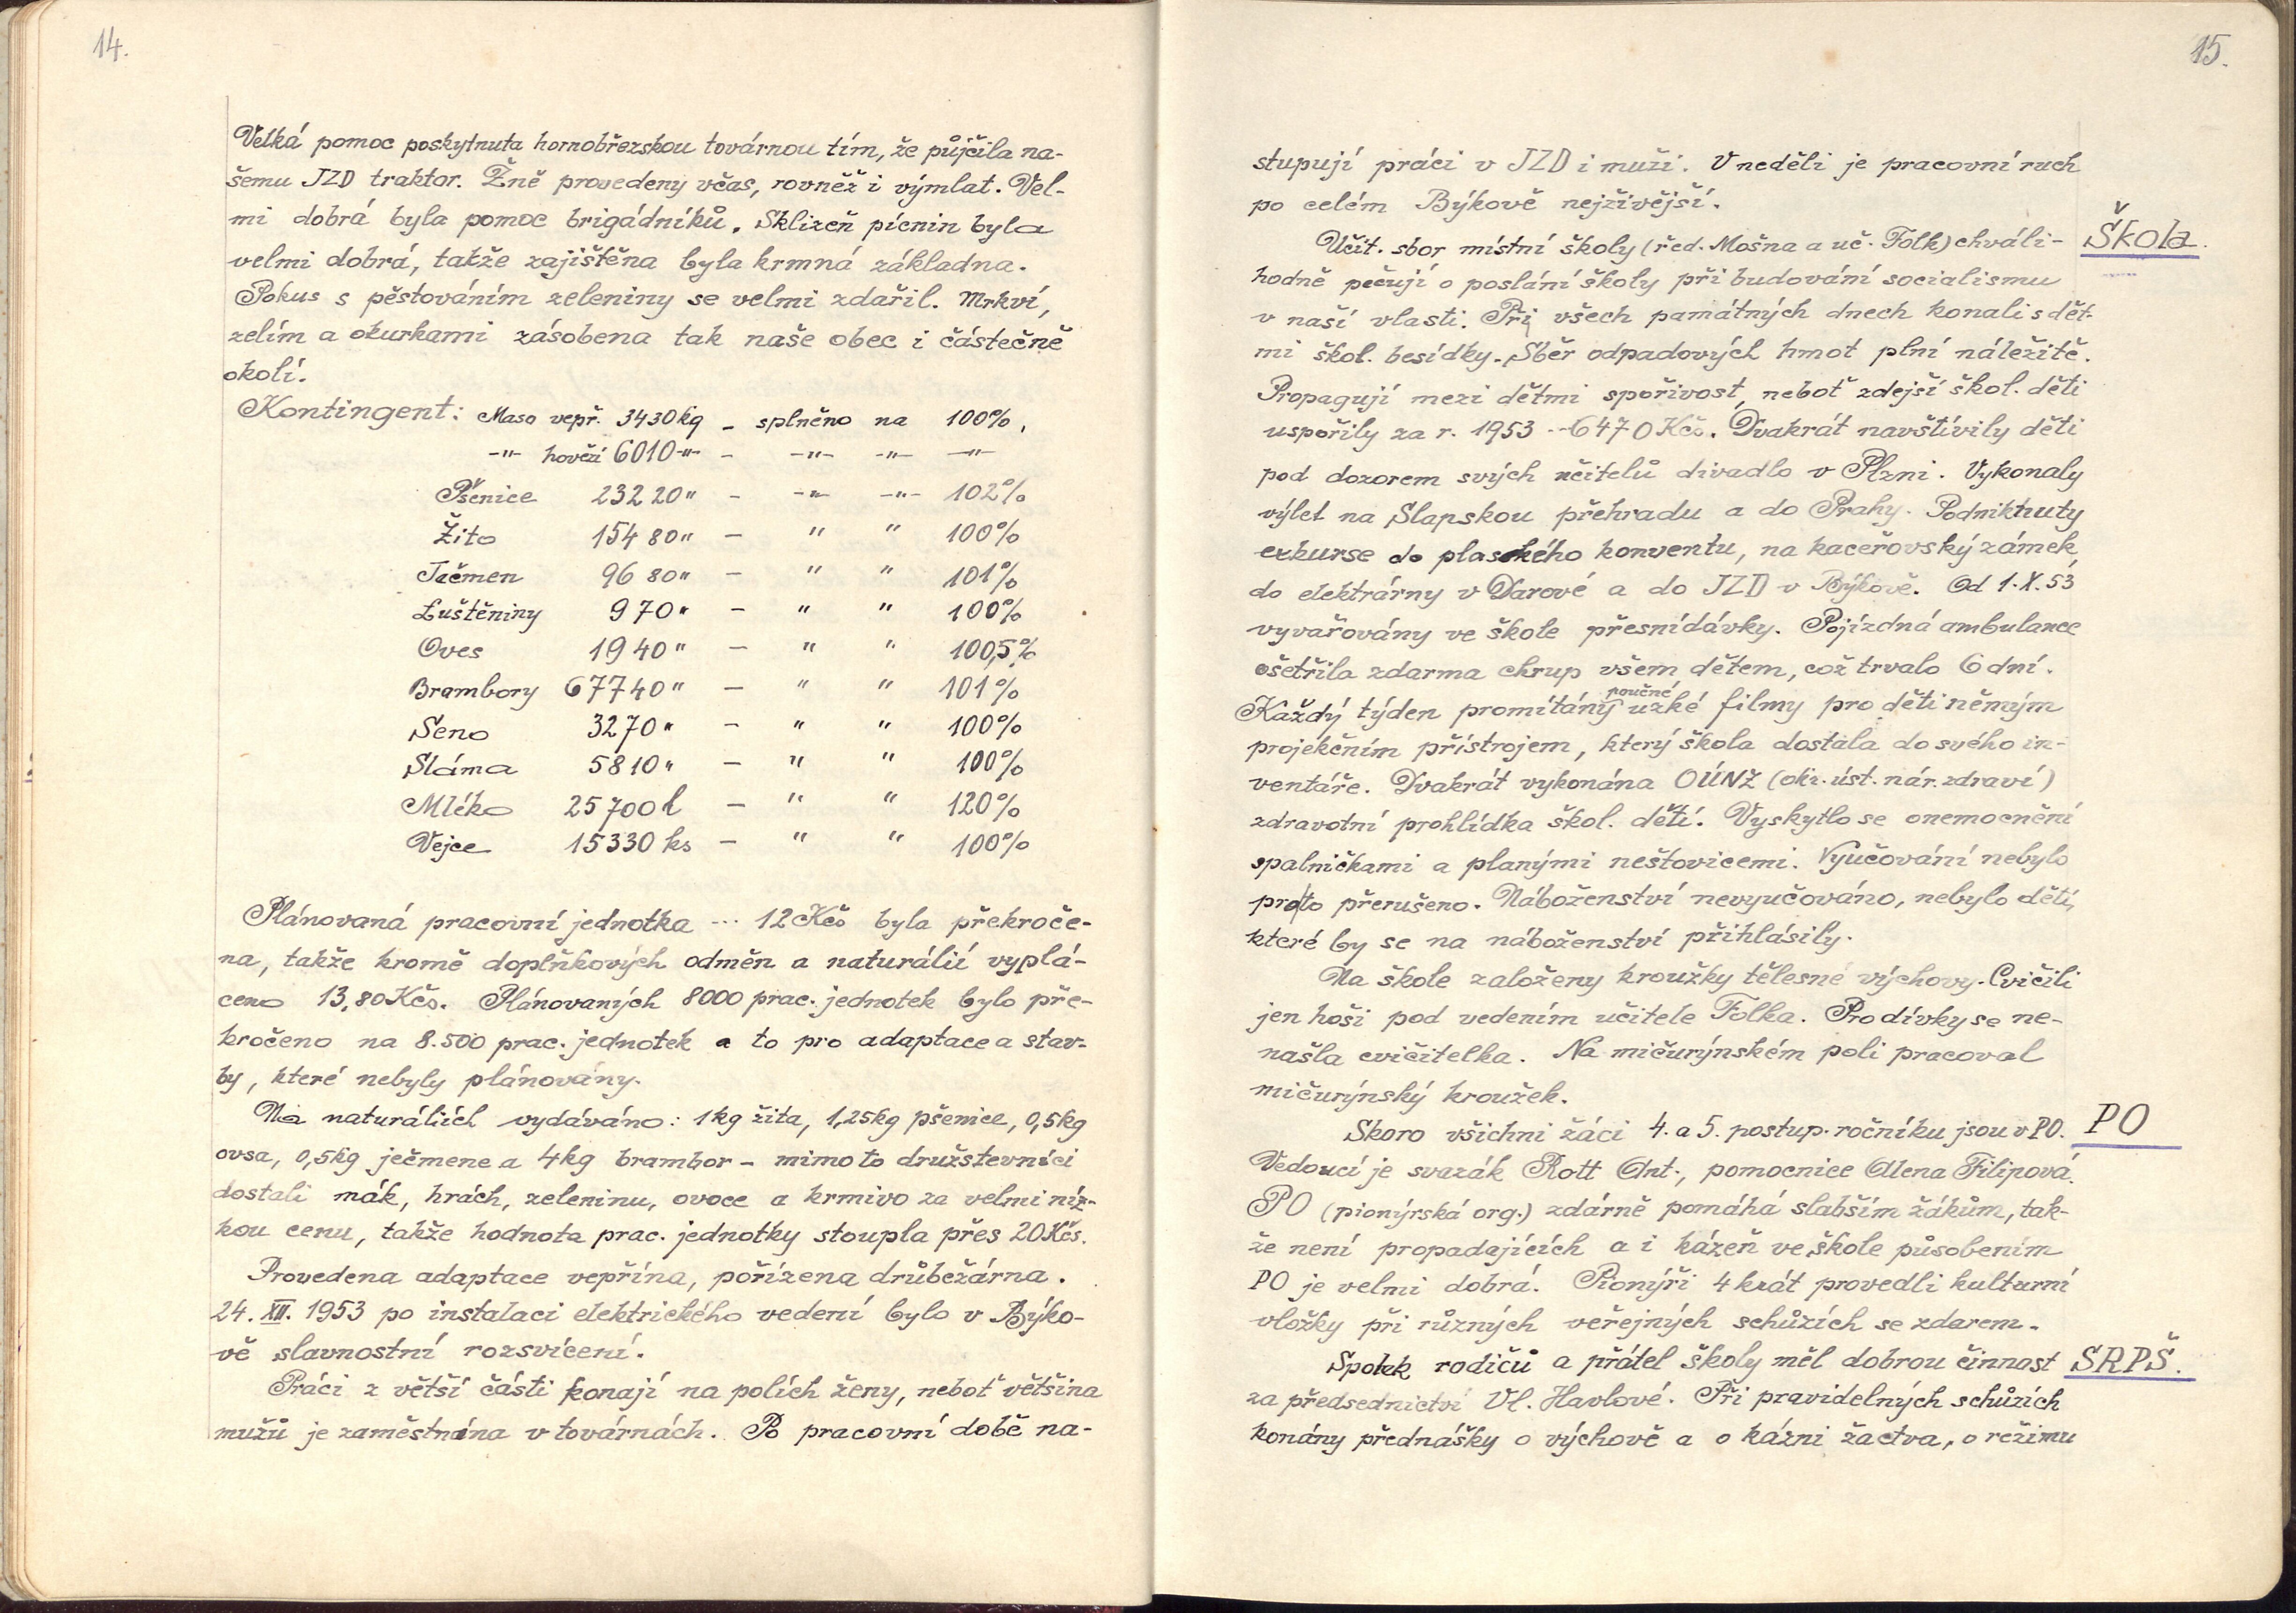 14.
Velká pomoc poskytnuta hornobřezskou továrnou tím, že půjčila na-
šemu JZD traktor. Žně provedeny včas, rovněž i výmlat. Vel-
mi dobrá byla pomoc brigádníků. Sklizeň pícnin byla
velmi dobrá, takže zajištěna byla krmná základna.
Pokus s pěstováním zeleniny se velmi zdařil. Mrkví,
zelím a okurkami zásobena tak naše obec i částečně
okolí.
Kontingent: Maso vepř. 3430 kg - splněno na 100%.
-"- hovězí 6010 -"- - -"- -"- -"-
Pšenice 232 20 " - -"- -"- 102%
Žito 154 80 " - " " 100%
Ječmen 96 80 " - " " 101%
Luštěniny 9 70 " - " " 100%
Oves 19 40 " - " " 100,5%
Brambory 677 40 " - " " 101%
Seno 3270 " - " " 100%
Sláma 5810 " - " " 100%
Mléko 25 700 l - " " 120%
Vejce 15330 ks - " " 100%
Plánovaná pracovní jednotka ... 12 Kčs byla překroče-
na, takže kromě doplňkových odměn a naturálií vyplá-
ceno 13,80 Kčs. Plánovaných 8000 prac. jednotek bylo pře-
kročeno na 8.500 prac. jednotek a to pro adaptace a stav-
by, které nebyly plánovány.
Na naturáliích vydáváno: 1 kg žita, 1,25 kg pšenice, 0,5 kg
ovsa, 0,5 kg ječmene a 4 kg brambor - mimo to družstevníci
dostali mák, hrách, zeleninu, ovoce a krmivo za velmi níz-
kou cenu, takže hodnota prac. jednotky stoupla přes 20 Kčs.
Provedena adaptace vepřína, pořízena drůbežárna.
24. XII. 1953 po instalaci elektrického vedení bylo v Býko-
vě slavnostní rozsvícení.
Práci z větší části konají na polích ženy, neboť většina
mužů je zaměstnána v továrnách. Po pracovní době na-
15.
stupují práci v JZD i muži. V neděli je pracovní ruch
po celém Býkově nejživější.
Učit. sbor místní školy (řed. Mošna a uč. Folk) chváli- Škola.
hodně pečují o poslání školy při budování socialismu
v naší vlasti. Při všech památných dnech konali s dět-
mi škol. besídky. Sběr odpadových hmot plní náležitě.
Propagují mezi dětmi spořivost, neboť zdejší škol. děti
uspořily za r. 1953 - 6470 Kčs. Dvakrát navštívily děti
pod dozorem svých učitelů divadlo v Plzni. Vykonaly
výlet na Slapskou přehradu a do Prahy. Podniknuty
exkurse do plaského konventu, na kaceřovský zámek,
do elektrárny v Darové a do JZD v Býkově. Od 1.X.53
vyvařovány ve škole přesnídávky. Pojízdná ambulance
ošetřila zdarma chrup všem dětem, což trvalo 6 dní.
Každý týden promítány poučné úzké filmy pro děti němým
projekčním přístrojem, který škola dostala do svého in-
ventáře. Dvakrát vykonána OÚNZ (okr. úst. nár. zdraví)
zdravotní prohlídka škol. dětí. Vyskytlo se onemocnění
spalničkami a planými neštovicemi. Vyučování nebylo
proto přerušeno. Náboženství nevyučováno, nebylo dětí,
které by se na náboženství přihlásily.
Na škole založeny kroužky tělesné výchovy. Cvičili
jen hoši pod vedením učitele Folka. Pro dívky se ne-
našla cvičitelka. Na mičurýnském poli pracoval
mičurýnský kroužek.
Skoro všichni žáci 4. a 5. postup. ročníku jsou v PO. PO
Vedoucí je svazák Rott Ant., pomocnice Alena Filipová.
PO (pionýrská org.) zdárně pomáhá slabším žákům, tak-
že není propadajících a i kázeň ve škole působením
PO je velmi dobrá. Pionýři 4 krát provedli kulturní
vložky při různých veřejných schůzích se zdarem.
Spolek rodičů a přátel školy měl dobrou činnost SRPŠ.
za předsednictví Vl. Havlové. Při pravidelných schůzích
konány přednášky o výchově a o kázni žactva, o režimu